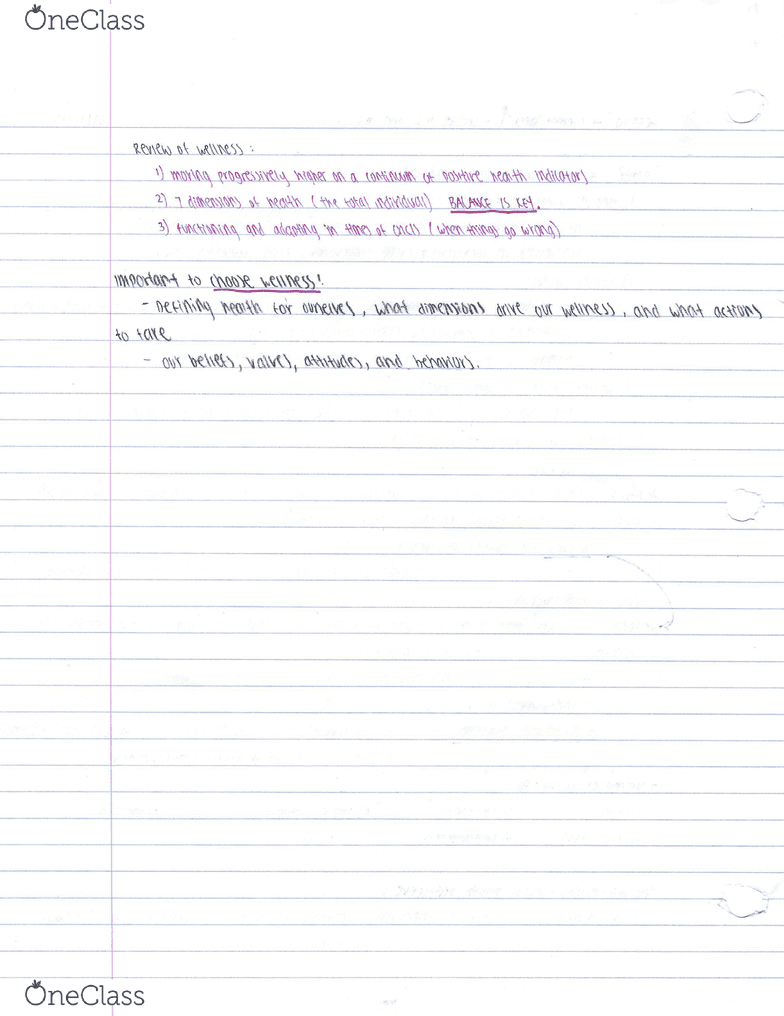 OneClass
Review of wellness :
1) moving progressively higher on a continuum of positive health indicators
2) 7 dimensions of health (the total individual) BALANCE IS KEY.
3) functioning and adapting in times of crisis (when things go wrong)
important to choose wellness!
- Defining health for ourselves, what dimensions drive our wellness, and what actions
to take
- our beliefs, values, attitudes, and behaviors.
OneClass